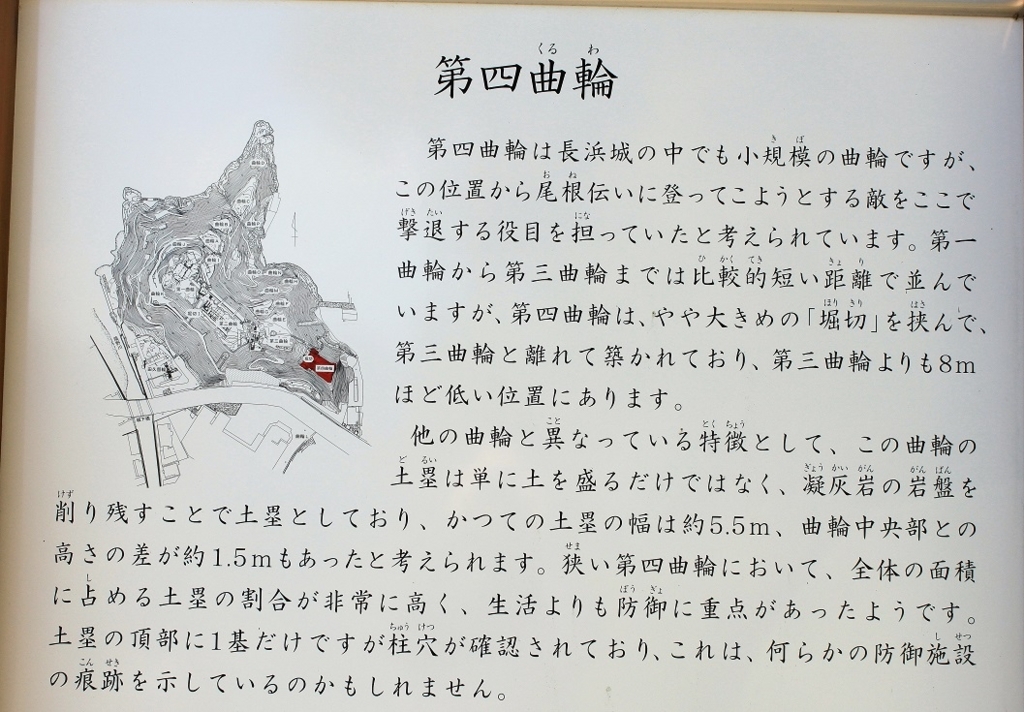 第四曲輪
第四曲輪は長浜城の中でも小規模の曲輪ですが、
この位置から尾根伝いに登ってこようとする敵をここで
撃退する役目を担っていたと考えられています。第一
曲輪から第三曲輪までは比較的短い距離で並んで
いますが、第四曲輪は、やや大きめの「堀切」を挟んで、
第三曲輪と離れて築かれており、第三曲輪よりも8m
ほど低い位置にあります。
他の曲輪と異なっている特徴として、この曲輪の
土塁は単に土を盛るだけではなく、凝灰岩の岩盤を
削り残すことで土塁としており、かつての土塁の幅は約5.5m、曲輪中央部との
高さの差が約1.5mもあったと考えられます。狭い第四曲輪において、全体の面積
に占める土塁の割合が非常に高く、生活よりも防御に重点があったようです。
土塁の頂部に1基だけですが柱穴が確認されており、これは、何らかの防御施設
の痕跡を示しているのかもしれません。